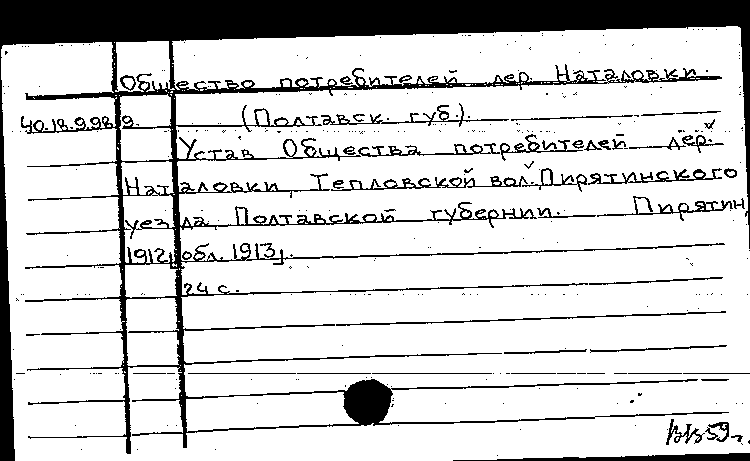 Общество потребителей дер. Наталовки.
40.18.9.98 9. (Полтавск. губ.).
Устав Общества потребителей дер.
Наталовки, Тепловской вол. Пирятинского
уезда, Полтавской губернии. Пирятин,
1912, [обл. 1913].
24 с.